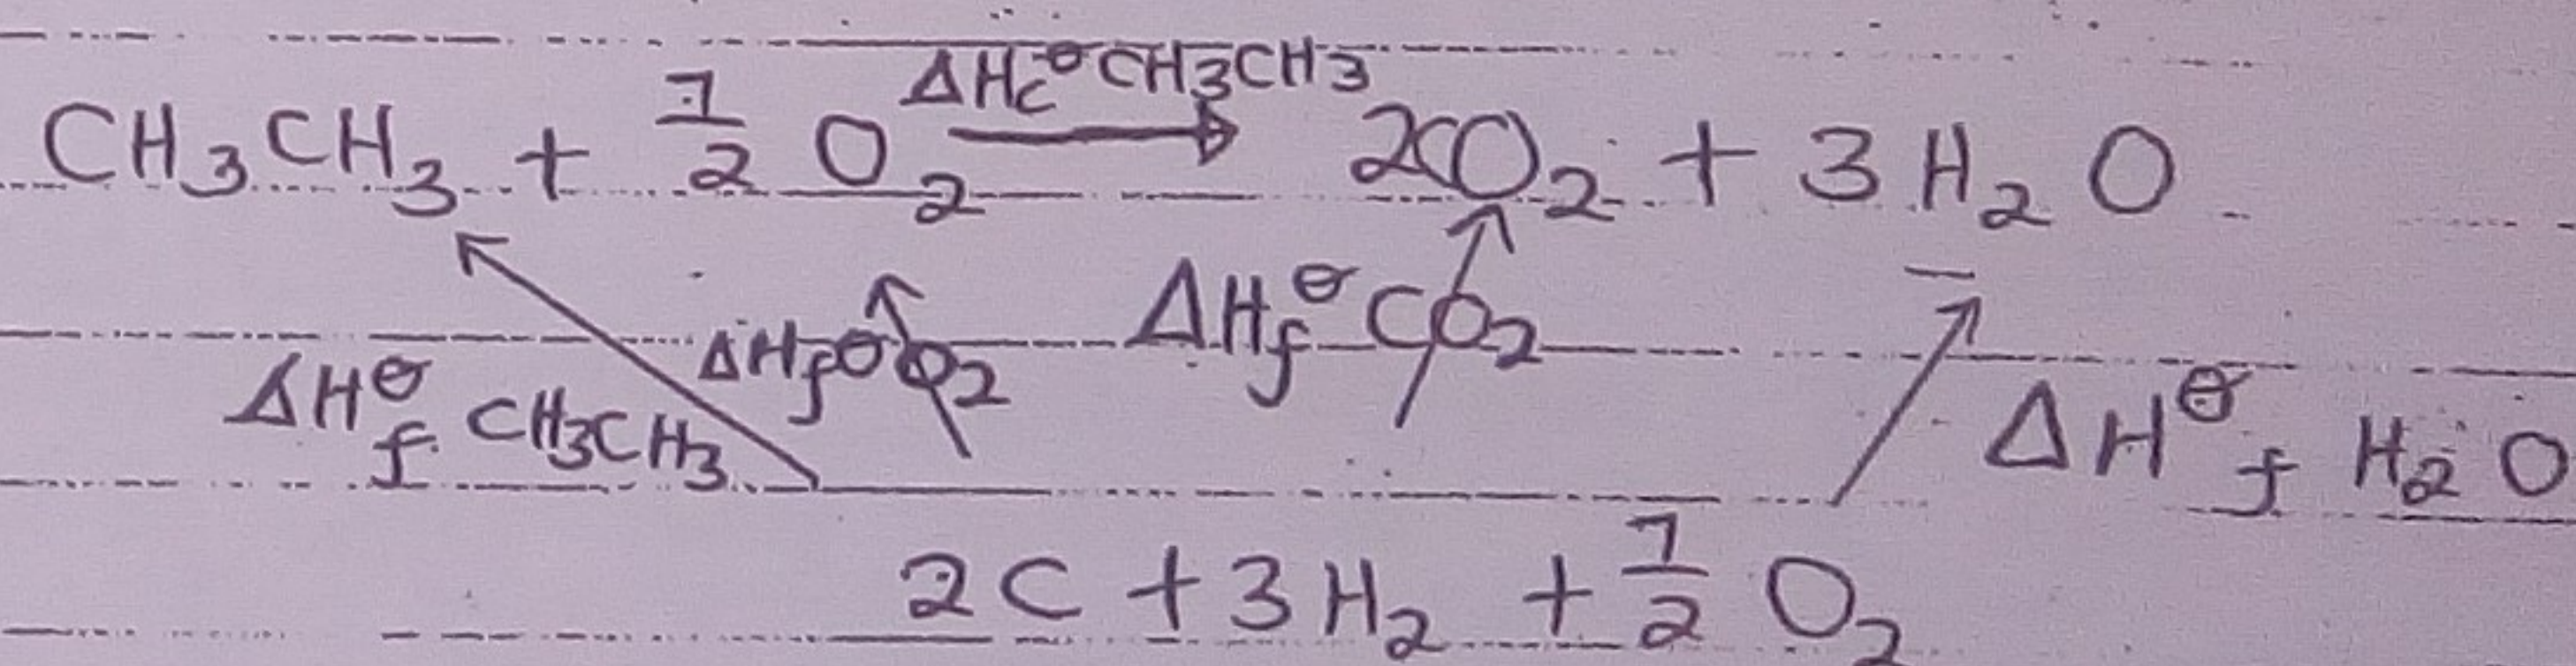 ΔHc⊖CH3CH3
CH₃CH₃ + 7/2 O₂ → 2CO₂ + 3H₂O
ΔHf⊖CH3CH3 ΔHf⊖O₂ ΔHf⊖CO₂ ΔH⊖f H₂O
2C + 3H₂ + 7/2 O₂